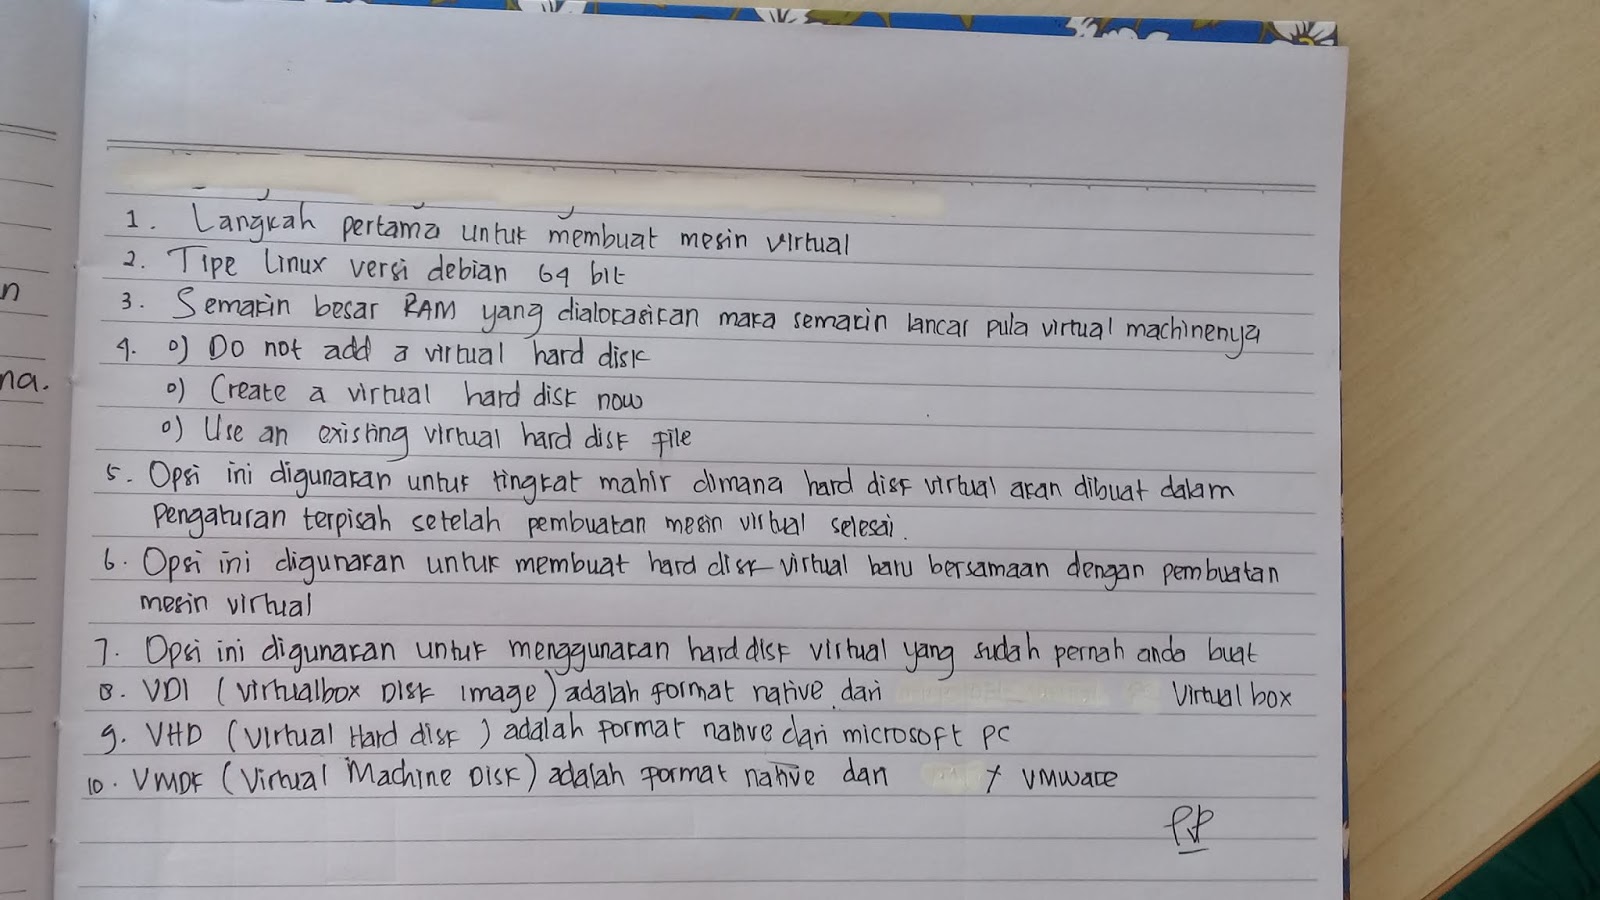 n
na.
1. Langkah pertama untuk membuat mesin virtual
2. Tipe linux versi debian 64 bit
3. Semakin besar RAM yang dialokasikan maka semakin lancar pula virtual machinenya
4. o) Do not add a virtual hard disk
o) Create a virtual hard disk now
o) Use an existing virtual hard disk file
5. Opsi ini digunakan untuk tingkat mahir dimana hard disk virtual akan dibuat dalam
pengaturan terpisah setelah pembuatan mesin virtual selesai.
6. Opsi ini digunakan untuk membuat hard disk virtual baru bersamaan dengan pembuatan
mesin virtual
7. Opsi ini digunakan untuk menggunakan hard disk virtual yang sudah pernah anda buat
8. VDI (virtualbox Disk image) adalah format native dari Virtual box
9. VHD (Virtual Hard disk) adalah format native dari microsoft PC
10. VMDK (Virtual Machine Disk) adalah format native dari VMware